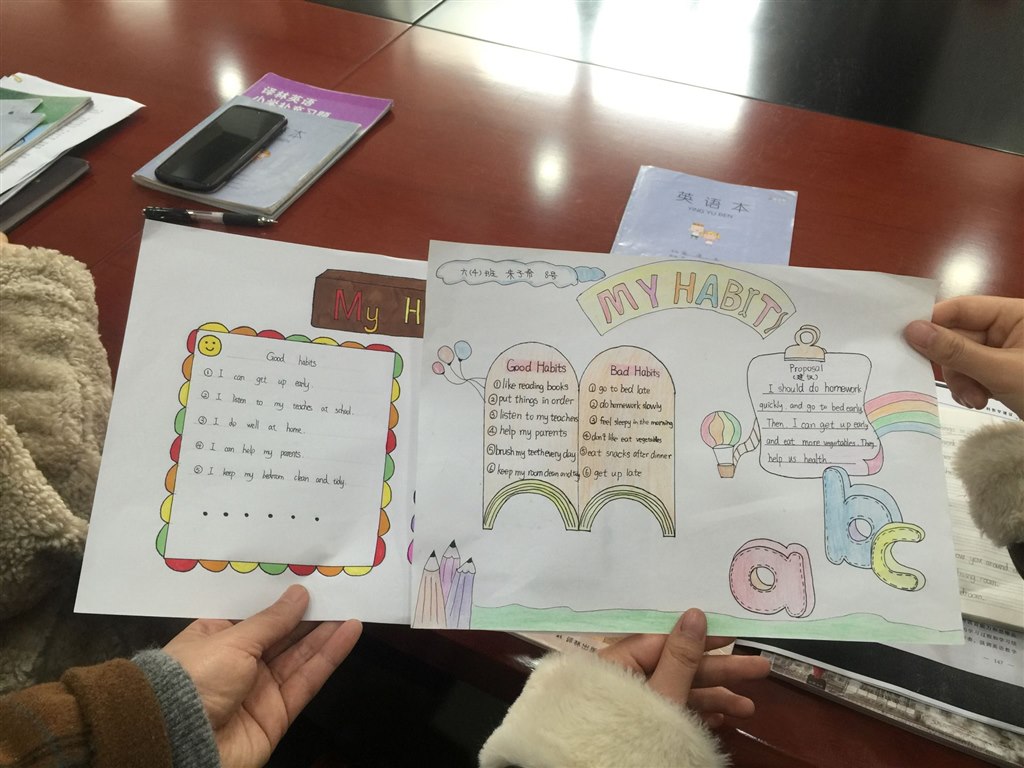 译林英语
小学补充习题
英语本
YING YU BEN
My H
Good habits
① I can get up early.
② I listen to my teacher at school.
③ I do well at home.
④ I can help my parents.
⑤ I keep my bedroom clean and tidy.
......
六(4)班 朱子希 8号
MY HABIT
Good Habits
①like reading books
②put things in order
③listen to my teachers
④help my parents
⑤brush my teeth every day
⑥keep my room clean and tidy
Bad Habits
①go to bed late
②do homework slowly
③feel sleepy in the morning
④don't like eat vegetables
⑤eat snacks after dinner
⑥get up late
Proposal
(建议)
I should do homework
quickly and go to bed early.
Then I can get up early
and eat more vegetables. They
help us health.
a
b
c
ove you around
room.
droom.
— 147